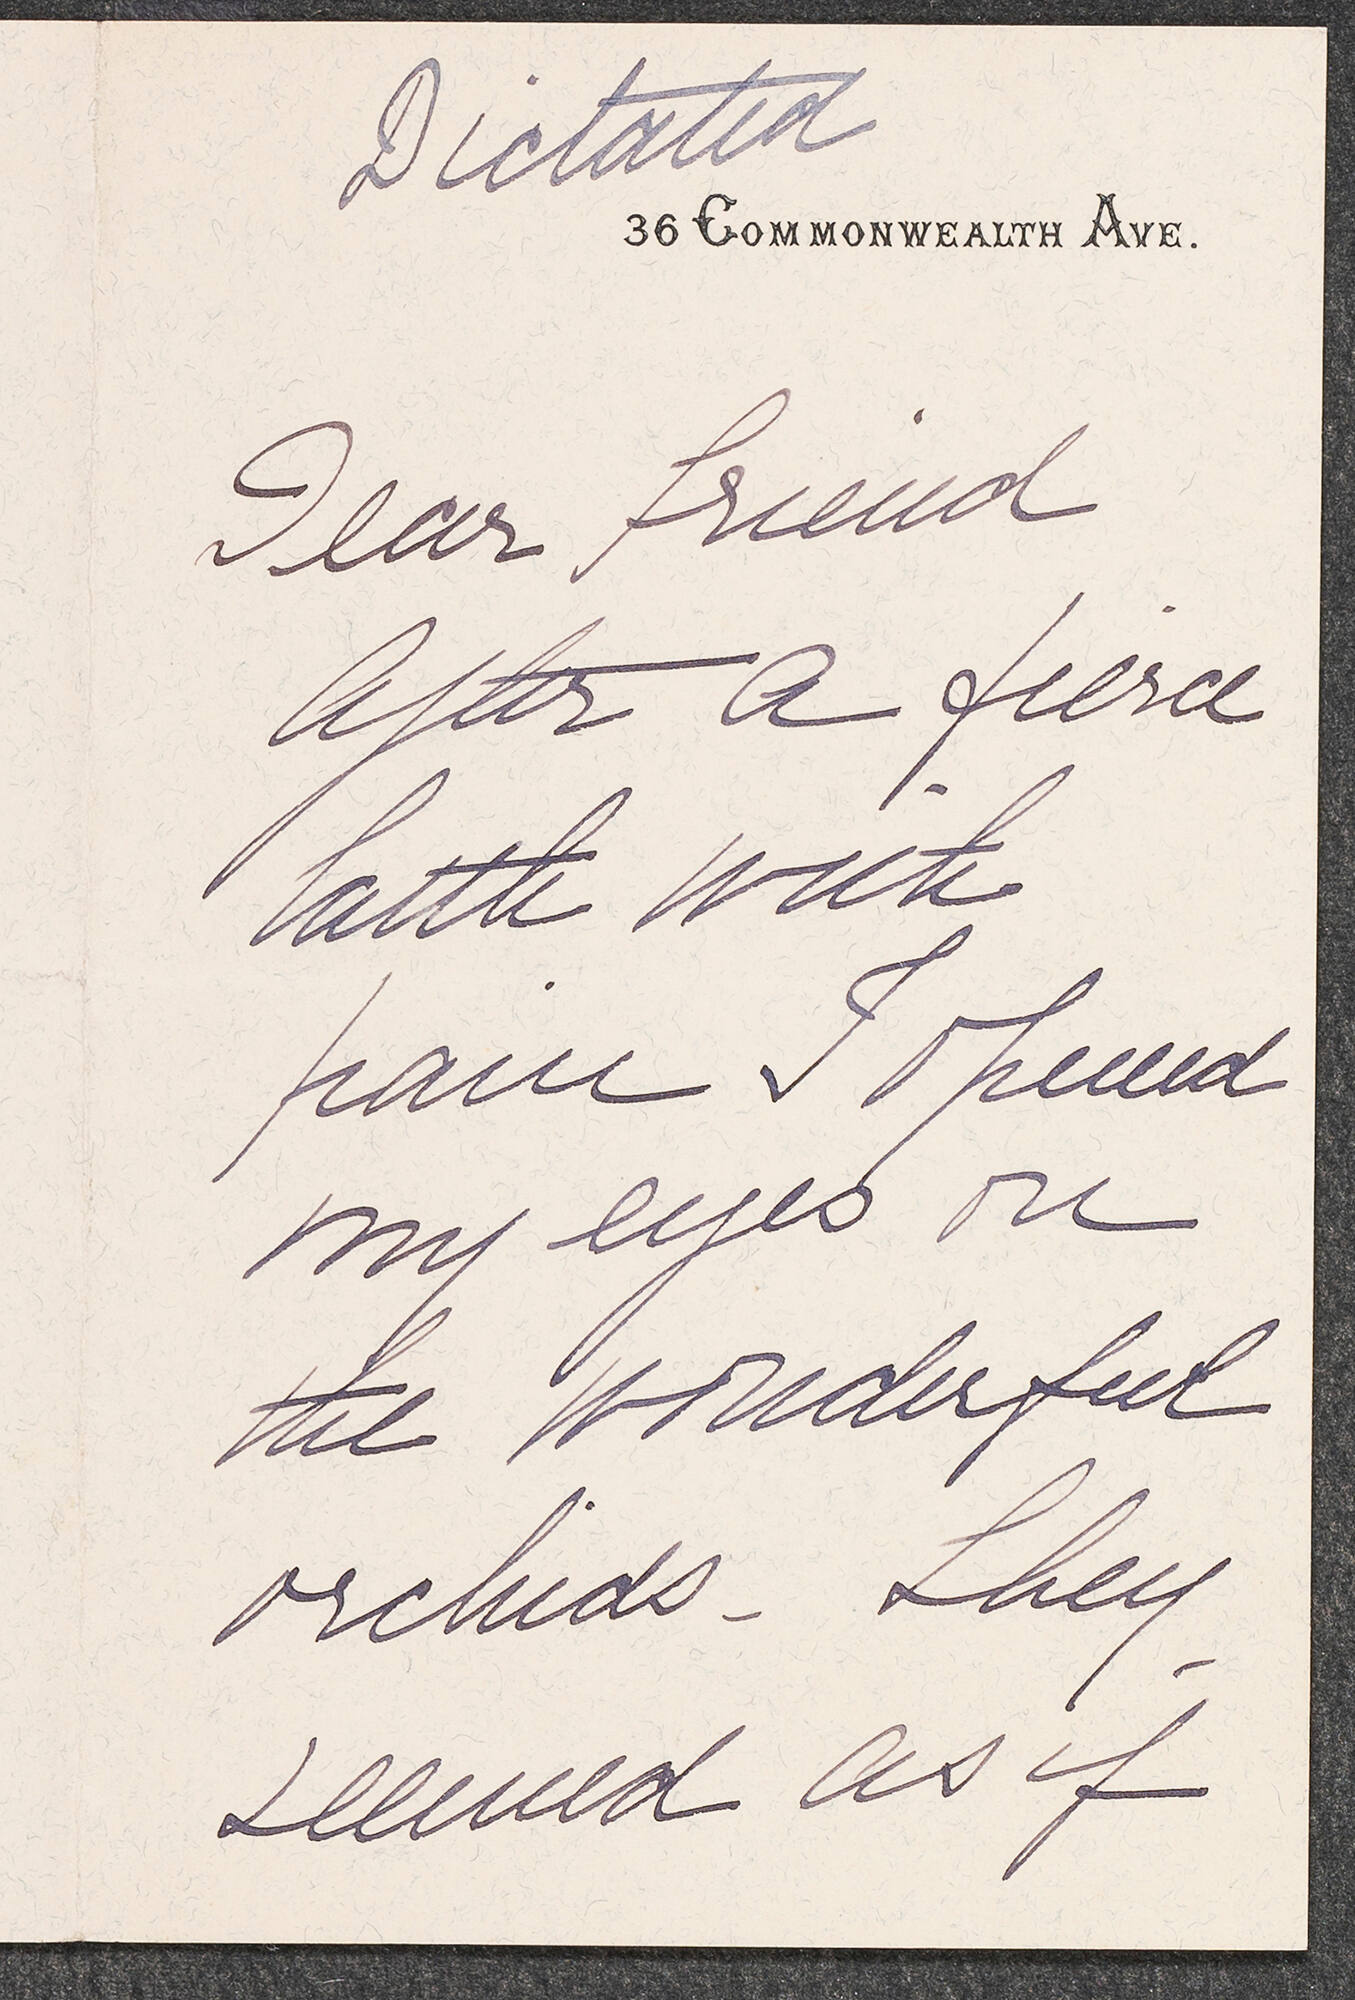 Dictated
36 Commonwealth Ave.
Dear friend
After a fierce
battle with
pain I opened
my eyes on
the wonderful
orchids - They
seemed as if